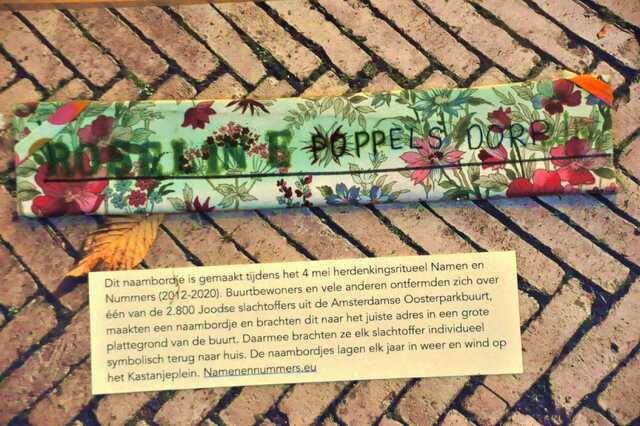 ROSELINE POPPELSDORF
Dit naambordje is gemaakt tijdens het 4 mei herdenkingsritueel Namen en
Nummers (2012-2020). Buurtbewoners en vele anderen ontfermden zich over
één van de 2.800 Joodse slachtoffers uit de Amsterdamse Oosterparkbuurt,
maakten een naambordje en brachten dit naar het juiste adres in een grote
plattegrond van de buurt. Daarmee brachten ze elk slachtoffer individueel
symbolisch terug naar huis. De naambordjes lagen elk jaar in weer en wind op
het Kastanjeplein. Namenennummers.eu